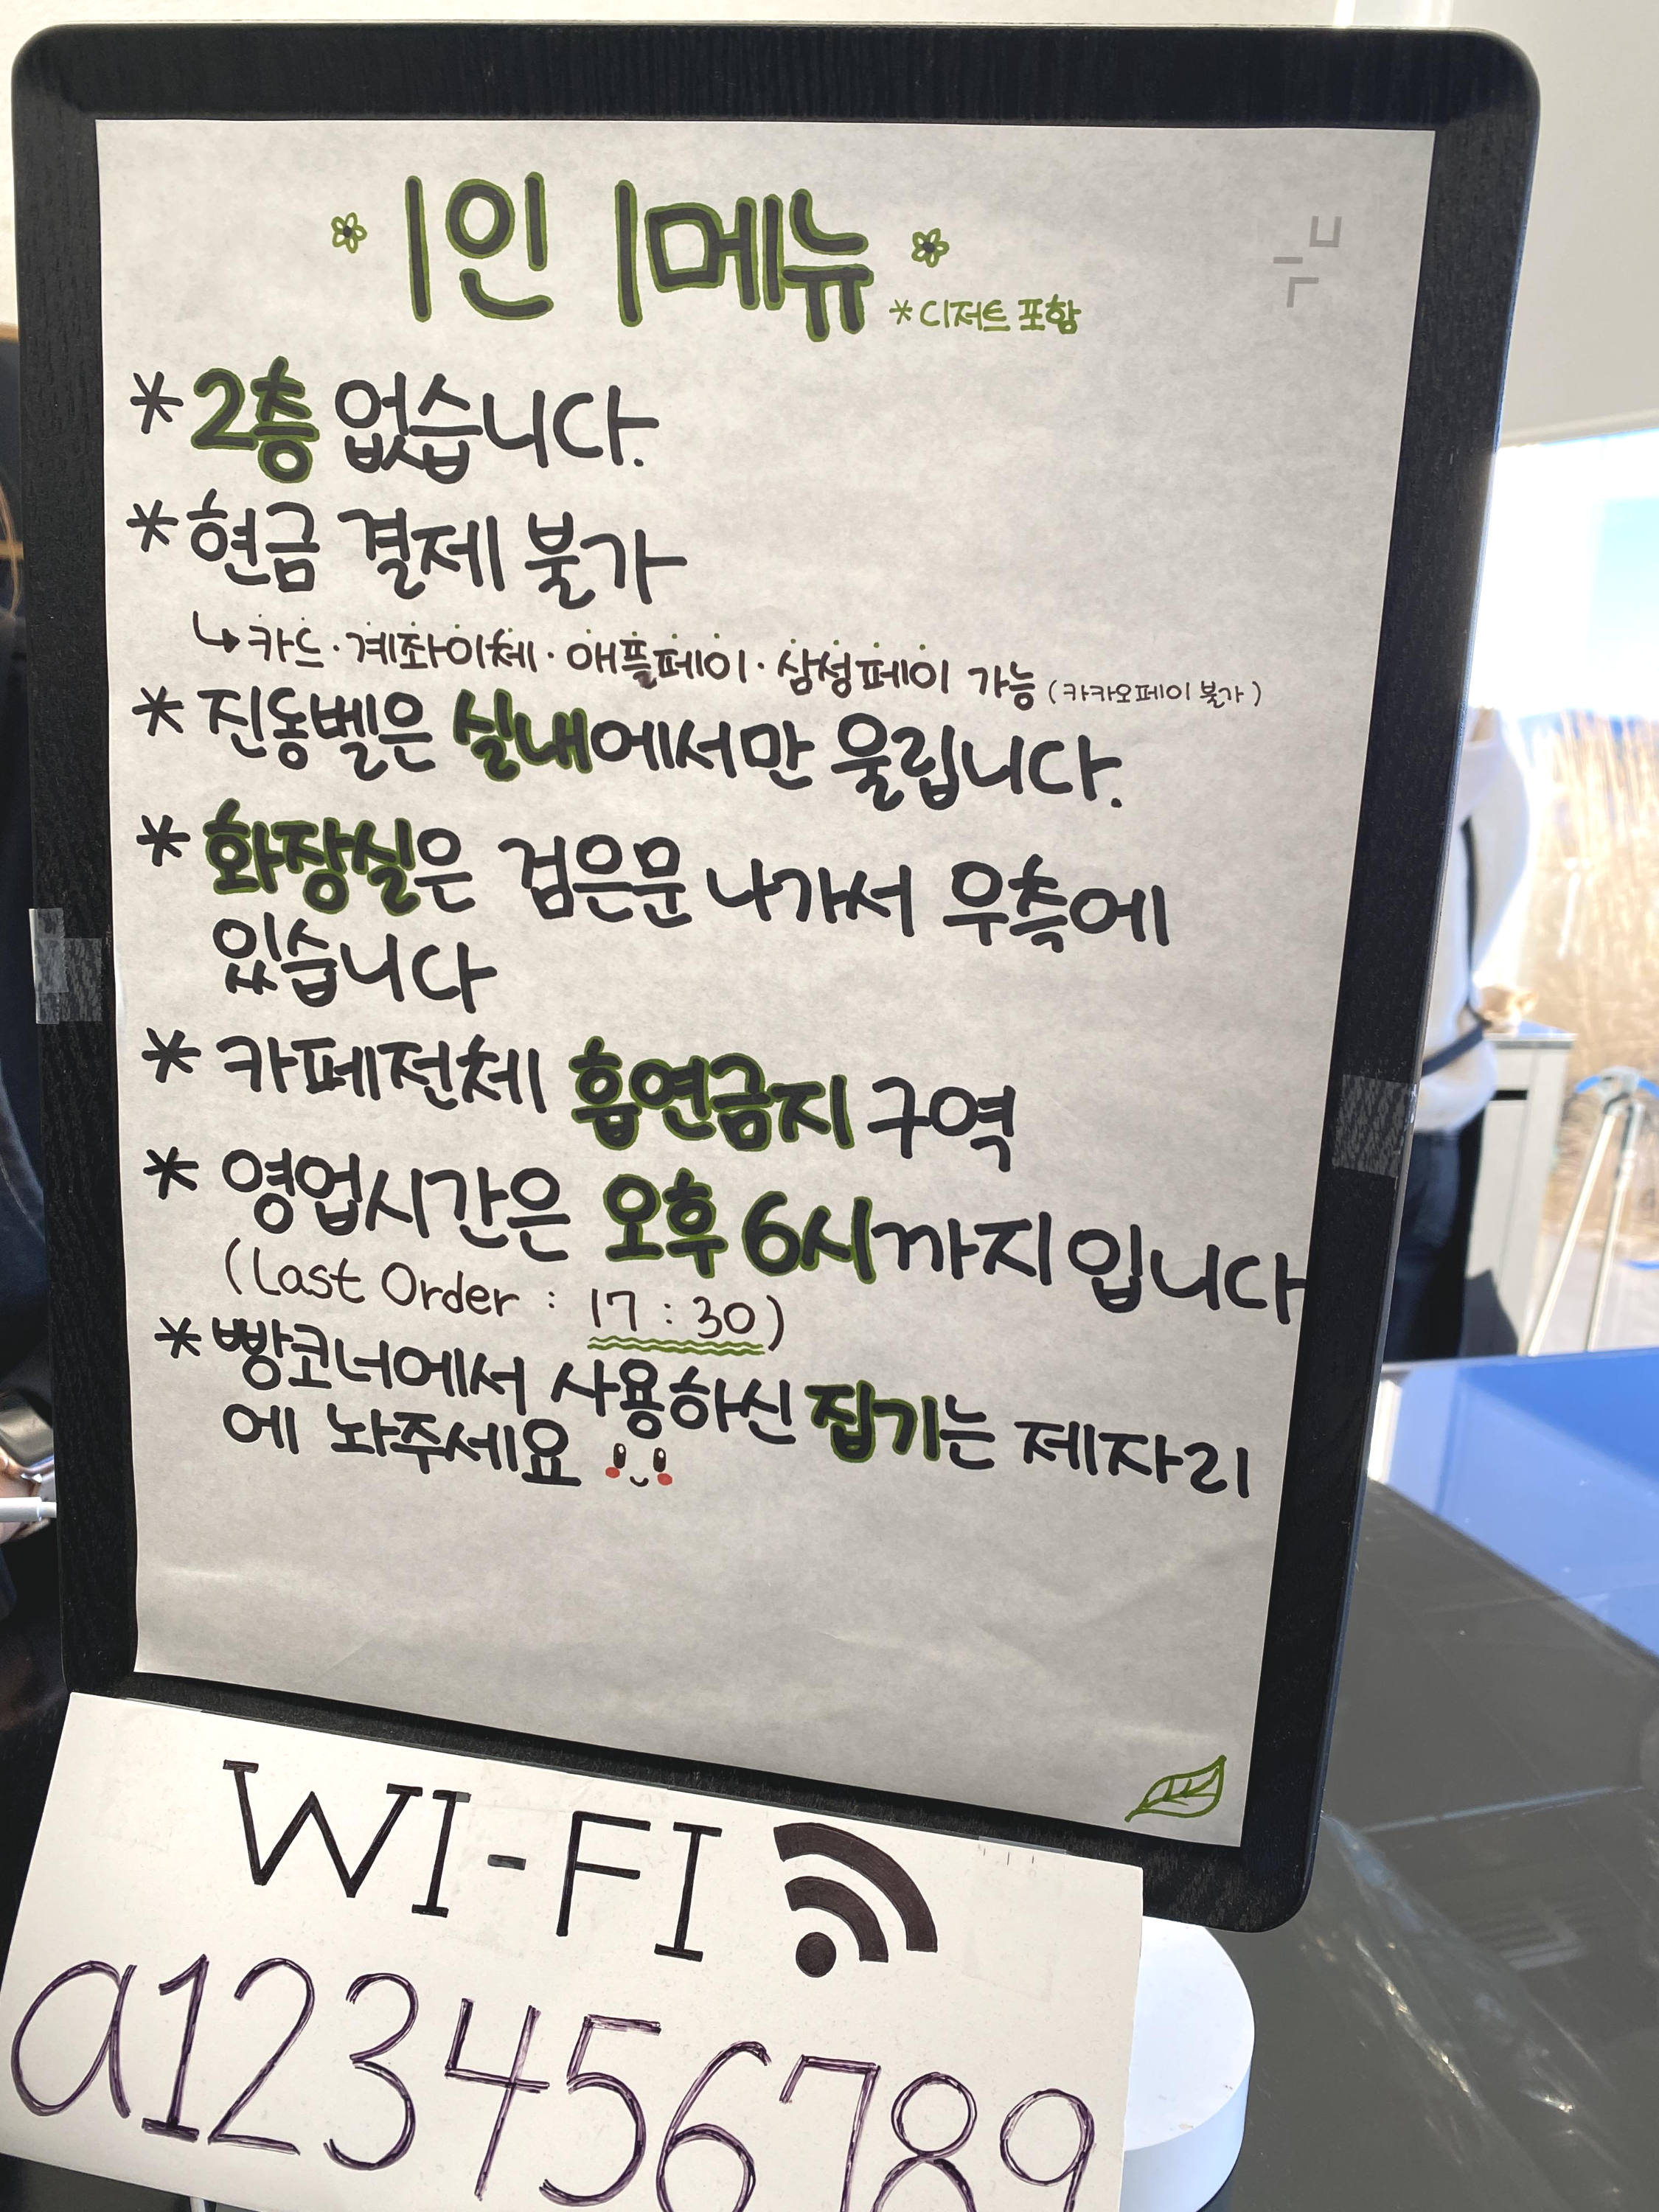 1인 1메뉴
*디저트 포함
*2층 없습니다.
*현금 결제 불가
↳카드·계좌이체·애플페이·삼성페이 가능 (카카오페이 불가)
*진동벨은 실내에서만 울립니다.
*화장실은 검은문 나가서 우측에
있습니다
*카페전체 흡연금지 구역
*영업시간은 오후 6시까지입니다
(Last Order : 17:30)
*빵코너에서 사용하신 집기는 제자리
에 놔주세요
WI-FI
a123456789